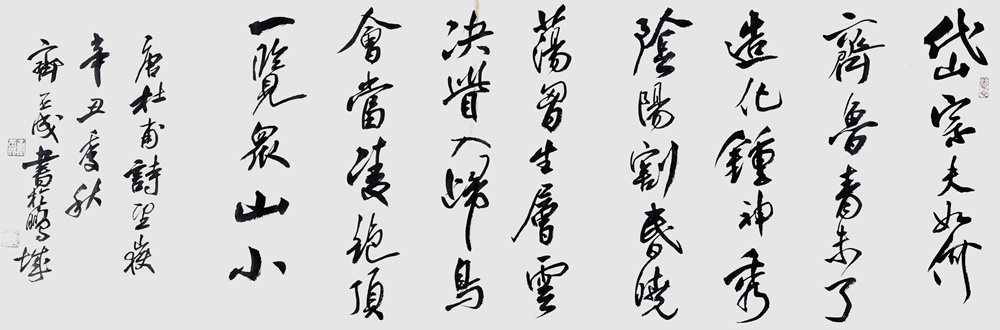 岱宗夫如何
齊魯青未了
造化鍾神秀
陰陽割昏曉
蕩胷生層雲
决眥入歸鳥
會當凌絕頂
一覽衆山小
唐杜甫詩望嶽
辛丑季秋
書於鵬城